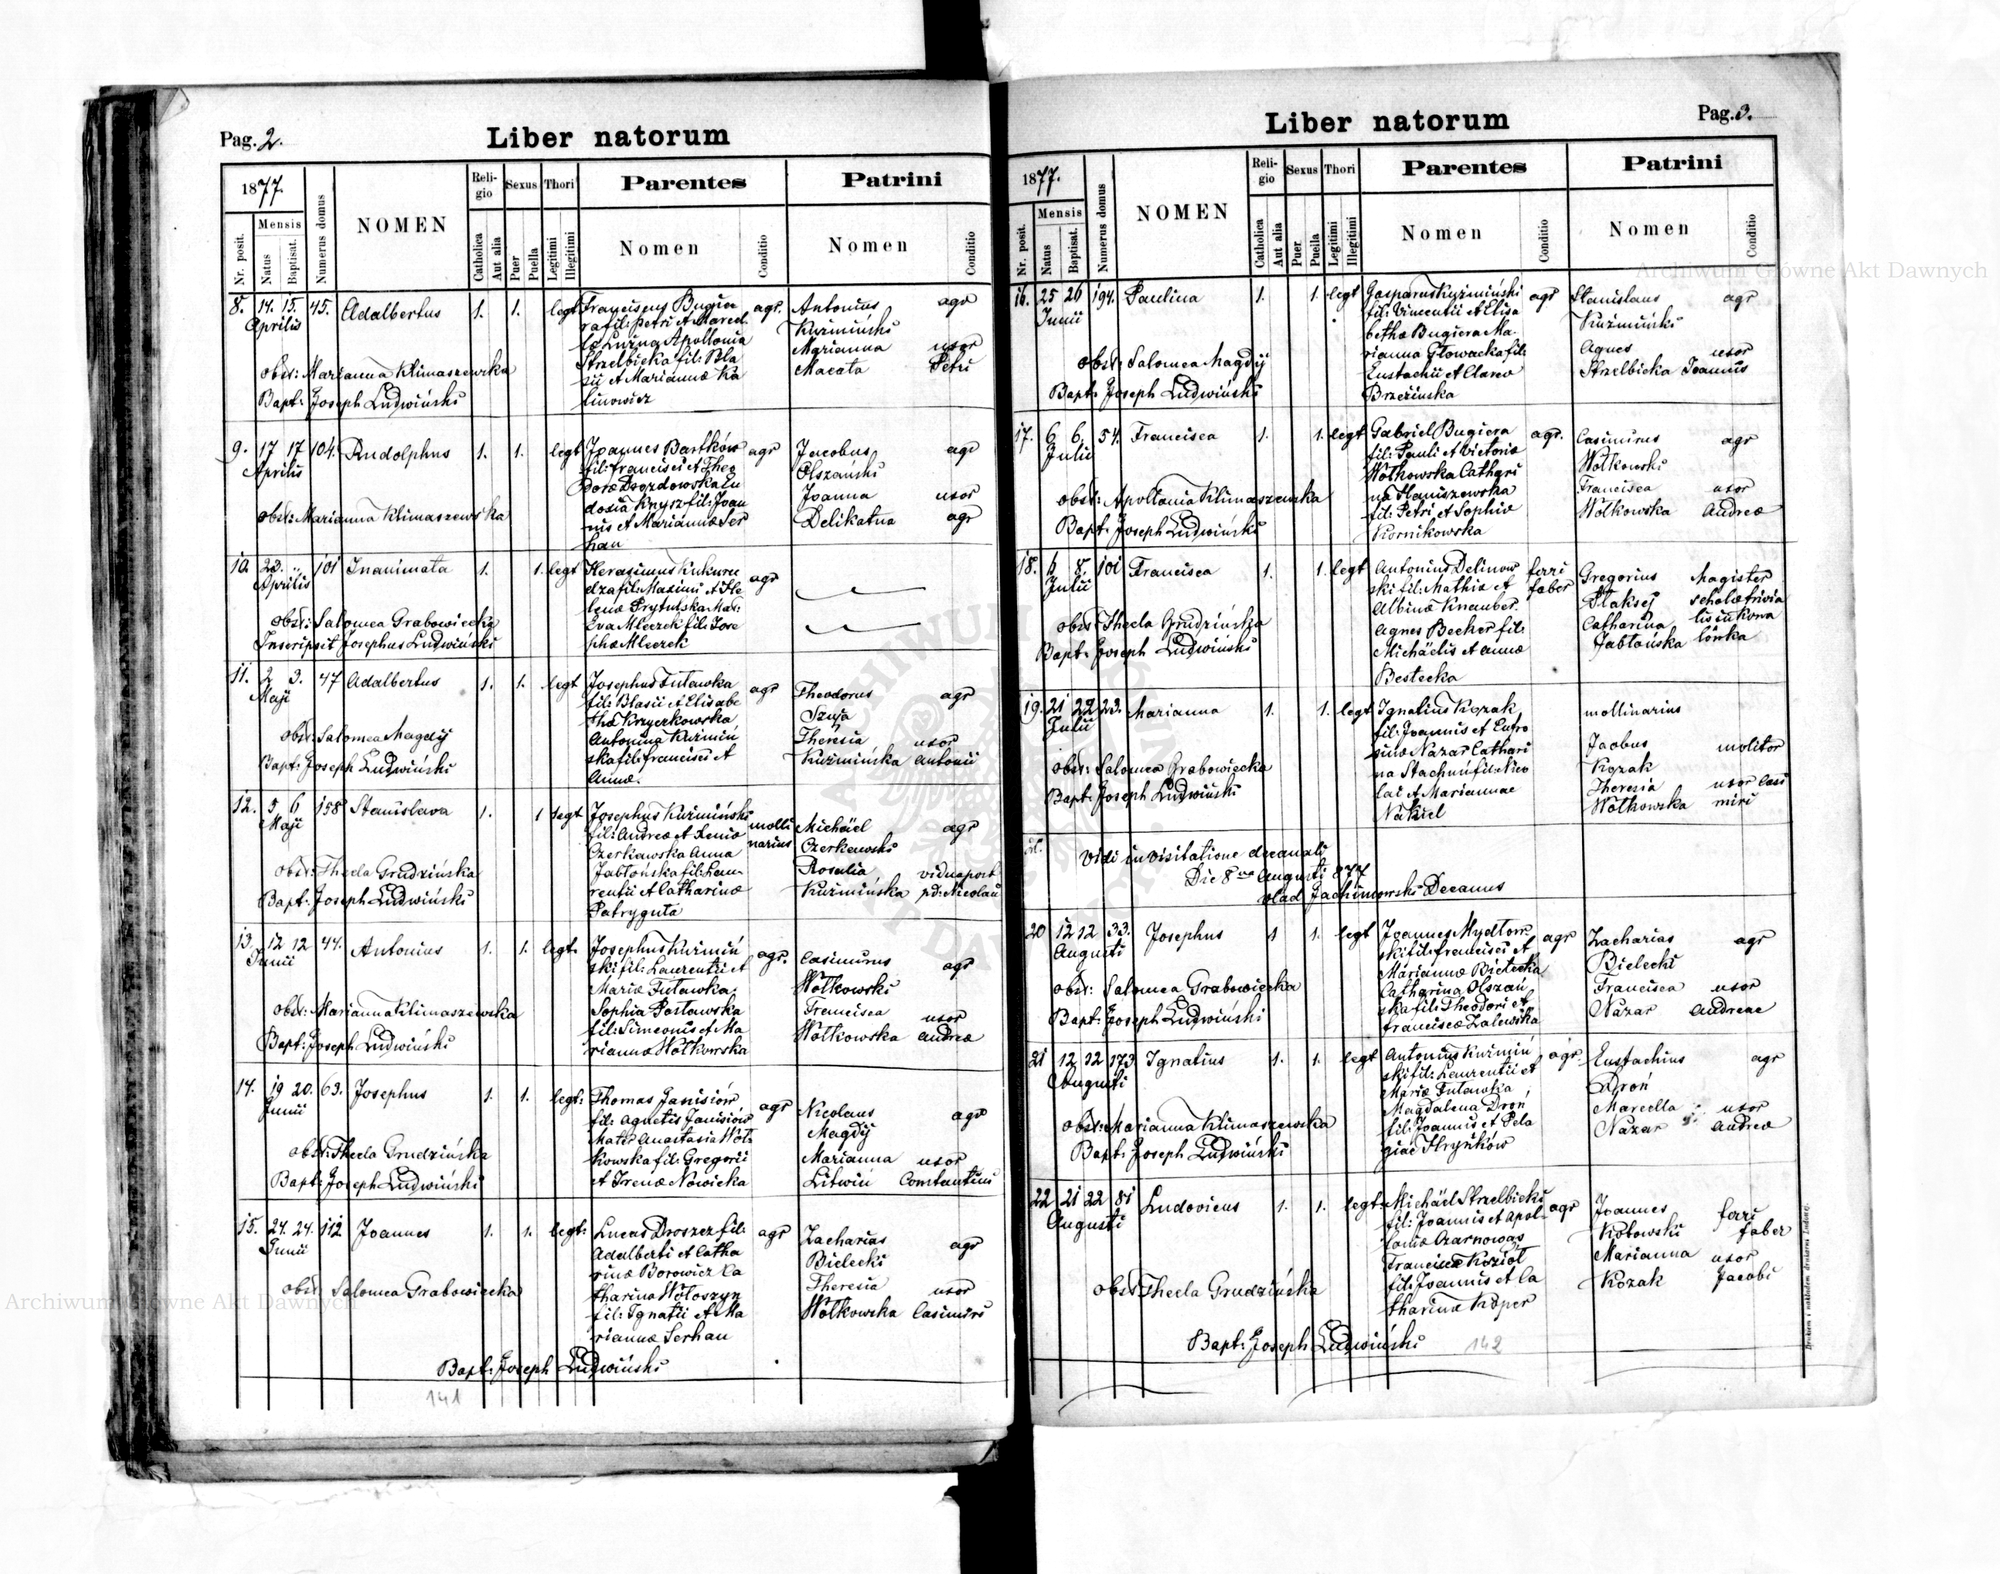 Pag. 2.
Liber natorum
1877.
Nr. posit.
Mensis
Natus
Baptisat.
Numerus domus
NOMEN
Religio
Catholica
Aut alia
Sexus
Puer
Puella
Thori
Legitimi
Illegitimi
Parentes
Nomen
Conditio
Patrini
Nomen
Conditio
8. 14. 15. 45. Adalbertus 1. 1. legt Franciscus Bugie agr. Antonius agr
Aprilis ra fil: Petri et Marcel Kuźmiński
læ Apollonia Marianna uxor
Strzelbicka fil: Bla Macata Petri
obst: Marianna Klimaszewska sii et Mariannæ Ka
Bapt: Joseph Ludwiński linowicz
9. 17 17 104. Rudolphus 1. 1. legt Joannes Bartków agr Jacobus agr
Aprilis fil: Francisci et Theo Olszański
doræ Drozdowska Eu Joanna uxor
obst: Marianna Klimaszewska doxia Knysz fil: Joan Delikatna agr
nis et Mariannæ Ser
han
10. 23. „ 101 Inanimata 1. 1. legt Herasimus Kukuru agr
Aprilis dza fil: Maximi et He
lenæ Prytulska Mat:
obst: Salomea Grabowiecka Eva Mleczek fil: Jose
Inscripsit Josephus Ludwiński phæ Mleczek
11. 2 3. 47 Adalbertus 1. 1. legt Josephus Futawka agr Theodorus agr
Maji fil: Blasii et Elisabe Szuja
thæ Krzyczkowska Theresia uxor
obst: Salomea Magdij Antonina Kuźmiń Kuźmińska Antonii
Bapt: Joseph Ludwiński ska fil: Francisci et
Annæ.
12. 5 6 158 Stanislava 1. 1 legt Josephus Kuźmiński molli Michäel agr
Maji fil: Andreæ et Xeniæ narius Czerkawski
Czerkawska Anna Rosalia vidua post
obst: Thecla Grudzińska Jabłońska fil: Lau Kuźmińska pd: Nicolau
Bapt: Joseph Ludwiński rentii et Catharinæ
Patryguta
13. 12 12 44. Antonius 1. 1. legt. Josephus Kuźmiń agr. Casimirus agr
Junii ski fil: Laurentii et Wołkowski
Mariæ Futawka. Francisca uxor
obst: Marianna Klimaszewska Sophia Postawska Wołkowska Andreæ
Bapt: Joseph Ludwiński fil: Simeonis et Ma
riannæ Wołkowska
14. 19 20. 63. Josephus 1. 1. legt: Thomas Janisiów agr Nicolaus agr
Junii fil: Agnetis Janisiów Magdij
Mater Anastasia Woł Marianna uxor
obst: Thecla Grudzińska kowska fil: Gregorii Litwin Constantini
Bapt: Joseph Ludwiński et Irenæ Nowicka
15. 24. 24. 112 Joannes 1. 1. legt: Lucas Droszcz fil: agr Zacharias agr
Junii Adalberti et Catha Bielecki
rinæ Borowicz Ca Theresia uxor
obst: Salomea Grabowiecka tharina Wołoszyn Wołkowska Casimiri
fil: Ignatii et Ma
riannæ Serhan
Bapt: Joseph Ludwiński
141
Pag. 3.
Liber natorum
1877.
Nr. posit.
Mensis
Natus
Baptisat.
Numerus domus
NOMEN
Religio
Catholica
Aut alia
Sexus
Puer
Puella
Thori
Legitimi
Illegitimi
Parentes
Nomen
Conditio
Patrini
Nomen
Conditio
16. 25 26 194. Paulina 1. 1. legt Gasparus Kuźmiński agr Stanislaus agr
Junii fil: Vincentii et Elisa Kuźmiński
bethæ Bugiera Ma Agnes uxor
obst: Salomea Magdij rianna Głowacka fil: Strzelbicka Joannis
Bapt: Joseph Ludwiński Eustachii et Claræ
Brzezinska
17. 6 6. 54. Francisca 1. 1. legt Gabriel Bugiera agr. Casimirus agr
Julii fil: Pauli et Victoriæ Wołkowski
Wołkowska Cathari Francisca uxor
obst: Apollonia Klimaszewska na Staniszewska Wołkowska Andreæ
Bapt: Joseph Ludwiński fil: Petri et Sophiæ
Kornikowska
18. 6 8. 101 Francisca 1. 1. legt Antonius Delinow ferri Gregorius Magister
Julii ski fil: Mathiæ et faber Płaksej scholæ trivia
Albinæ Knauber. Catharina lis
obst: Thecla Grudzińska Agnes Becker fil: Jabłońska
Bapt: Joseph Ludwiński Michäelis et Annæ
Bestecka
19. 21 22 23. Marianna 1. 1. legt Ignatius Kozak mollinarius
Julii fil: Joannis et Eufro Jacobus molitor
sinæ Nazar Cathari Kozak
obst: Salomea Grabowiecka na Stachnú fil: Nico Theresia uxor Casi
Bapt: Joseph Ludwiński lai et Mariannae Wołkowska miri
Nakiel
Vidi in visitatione decanali
Die 8va Augusti 877
Vlad Jachimowski Decanus
20 12 12 33. Josephus 1 1. legt Joannes Mydłow agr Zacharias agr
Augusti ski fil: Francisci et Bielecki
Mariannæ Bielecka Francisca uxor
obst: Salomea Grabowiecka Catharina Olszań Nazar Andreae
Bapt: Joseph Ludwiński ska fil: Theodori et
Franciscæ Zalewska
21 12 12 173 Ignatius 1. 1. legt Antonius Kuźmiń agr. Eustachius agr
Augusti ski fil: Laurentii et Droń
Mariæ Futawka Marcella uxor
obst: Marianna Klimaszewska Magdalena Droń Nazar Andreæ
Bapt: Joseph Ludwiński fil: Joannis et Pela
giae Hryńków
22 21 22 81 Ludovicus 1. 1. legt Michäel Strzelbicki agr Joannes ferri
Augusti fil: Joannis et Apol Kotowski faber
loniæ Czarnowąs Marianna uxor
obst Thecla Grudzińska Francisca Kozioł Kozak Jacobi
fil: Joannis et Ca
tharinæ Koper
Bapt: Joseph Ludwiński
142
Archiwum Główne Akt Dawnych
Archiwum Główne Akt Dawnych